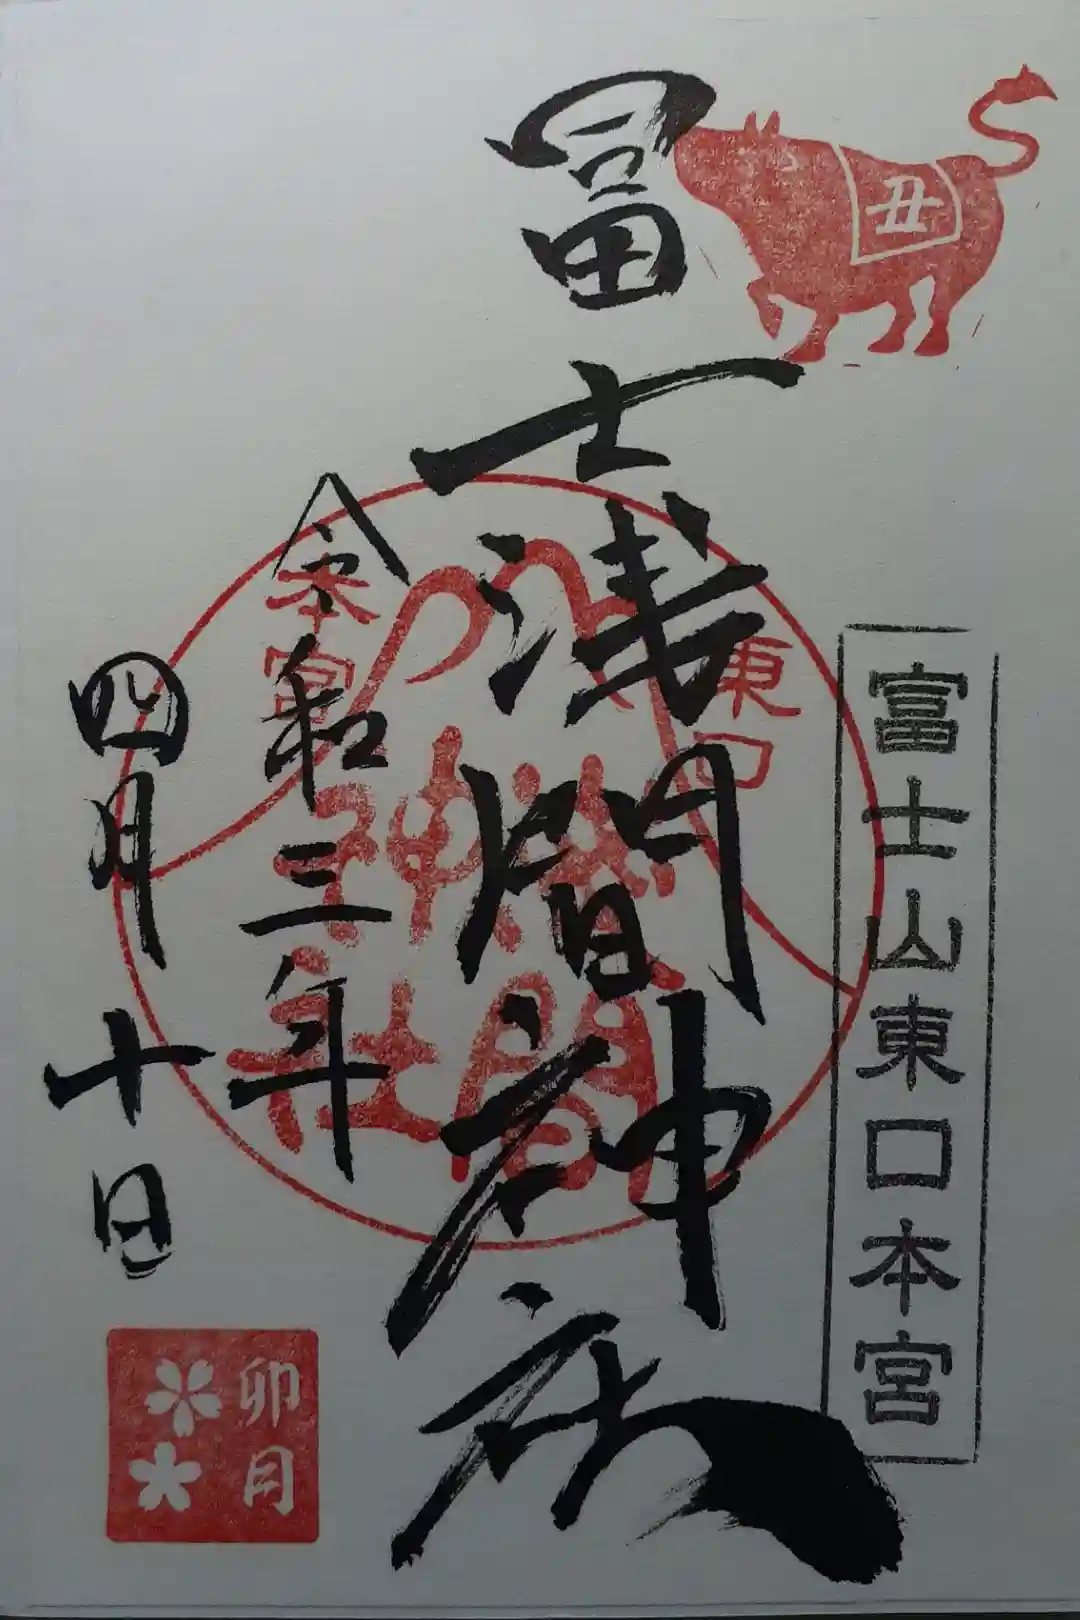 丑
富士山東口本宮
冨士浅間神社
東口
本宮
浅間
神社
令和三年
四月十日
卯月